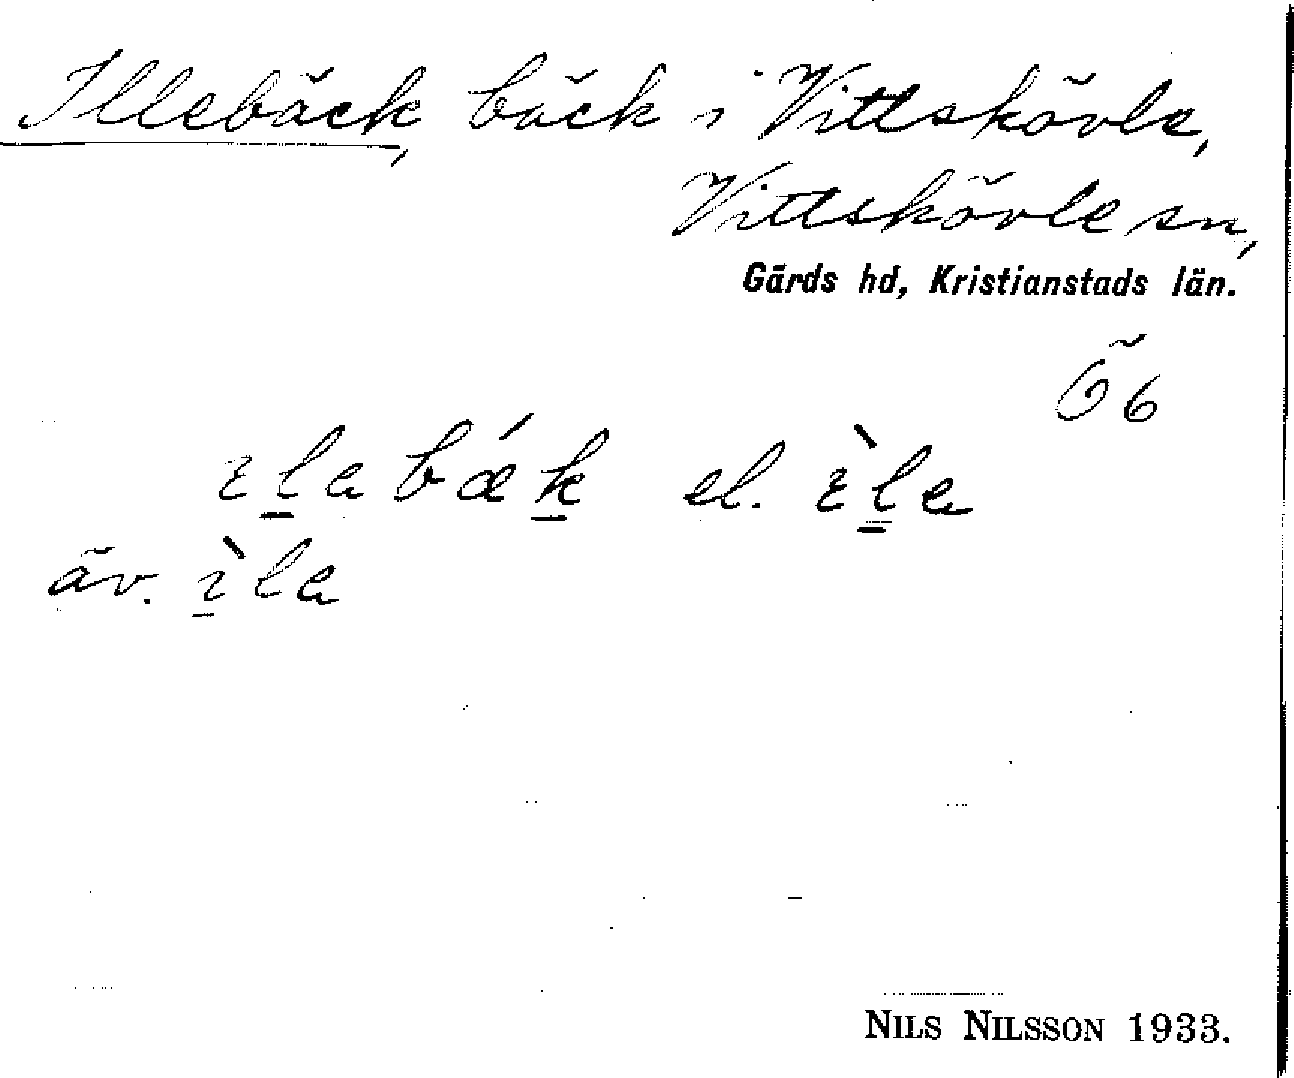 Illebäck, bäck i Vittskövle,
Vittskövle sn,
Gärds hd, Kristianstads län.
Ö6
ɪl̲abǽk̲ el. ɪ̀l̲a
äv. ɪ̲̀la
NILS NILSSON 1933.